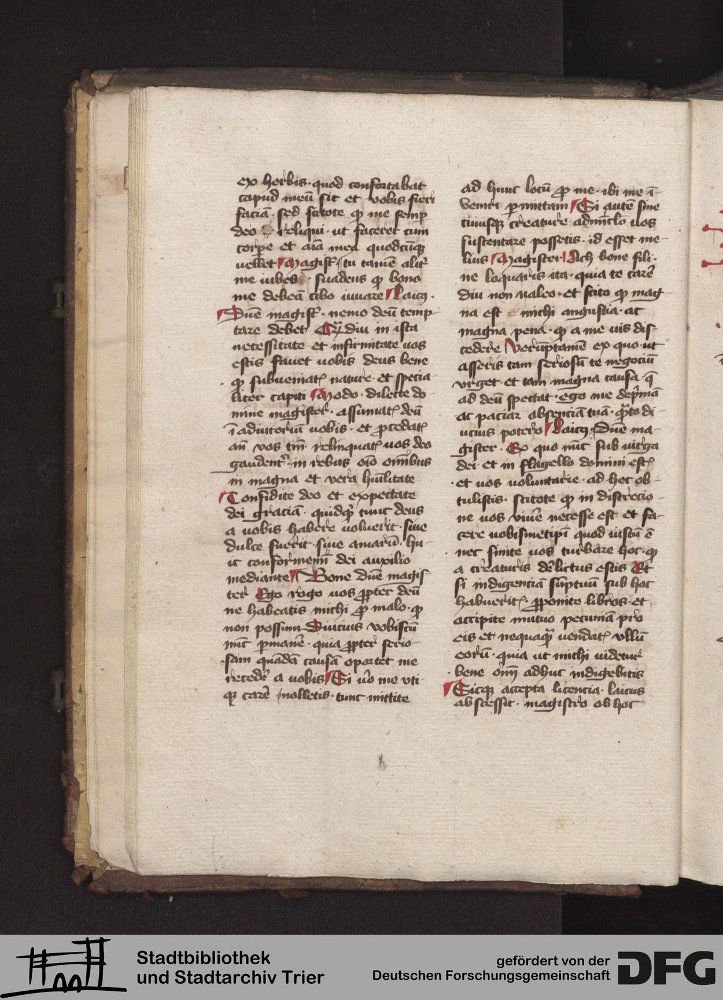 ex herbis · quod confortabat
capud meū sit et vobis fieri
faciā · sed scitote ꝙ me semꝑ
deo reliqui · ut faceret cum
corꝑe et aīa mea quodcūqꝫ
vellet Magist᷑ · tu tamē alit᷑
me iubes · suadens ꝙ bono
me debeā cibo iuuare Laicꝰ ·
Dn̄e magist᷑ · nemo deū temp
tare debet Qꝫdiu in ista
necessitate et infirmitate vos
estis fauet vobis deus bene
ꝙ subueniatꝭ nature · et specia
liter capiti Modo · dilecte do
mine magister · assumatꝭ deū
ī adiutoriū vobis · et ꝓcedatꝭ
an̄ vos tm̄ relinquatꝭ vos deo
gaudentꝭ in rebus oīo omībus
in magna et vera hūilitate
Confidite deo et expectate
dei graciā · quidqꝫ tunc deus
a vobis habere voluerit · siue
dulce fuerit · siue amarū · hu
ic conformem̄ dei auxilio
mediante Bone dn̄e magis
ter Ego rogo vos ꝓpter deū
ne habeatis michi ꝓ malo · ꝙ
non possum diucius vobiscū
nūc ꝑmanē · quia ꝓpter serio
sam quādā causā oportet me
recedē a vobis Si v̄o me vti
qꝫ carē nolletis · tunc mittite
ad hunc locū ꝓ me · ibi me ī
veniri ꝑmittam Si autē sine
cuiusqꝫ creature admīclo vos
sustentare possetis · id esset me
lius Magister Ach bone fili ·
ne loquaris ita · quia te carē
diu non valeo · et scito ꝙ mag
na est michi angustia · ac
magna pena · ꝙ a me vis dis
cedere Verūptamē ex quo ut
asseris tam seriosū te negociū
vrget · et tam magna causa q̄
ad deū spectat · ego me deprimā
ac paciar absenciā tuā · q̄to di
ucius potero Laicꝰ · Dn̄e ma
gister · Ex quo nūc sub virga
dei et in flagello domini estꝭ
· et vos voluntarie · ad hec ob
tulistis · scitote ꝙ in discrecio
ne vos viuē necesse est et fa
cere vobismetipī quod iustū ē
nec sinite vos turbare hoc · ꝙ
a creaturis delictus estis Et
si indigenciā sūptuū sub hoc
habueritꝭ ꝓponito libros · et
accipite mutuo pecuniā pro
eis et nequaqꝫ vendatꝭ vllū
eorū · quia ut michi videtur
· bene om̄ adhuc indigebitis
Sicqꝫ accepta licencia · laicus
abscessit · magistro ob hoc
Stadtbibliothek
und Stadtarchiv Trier
gefördert von der
Deutschen Forschungsgemeinschaft
DFG